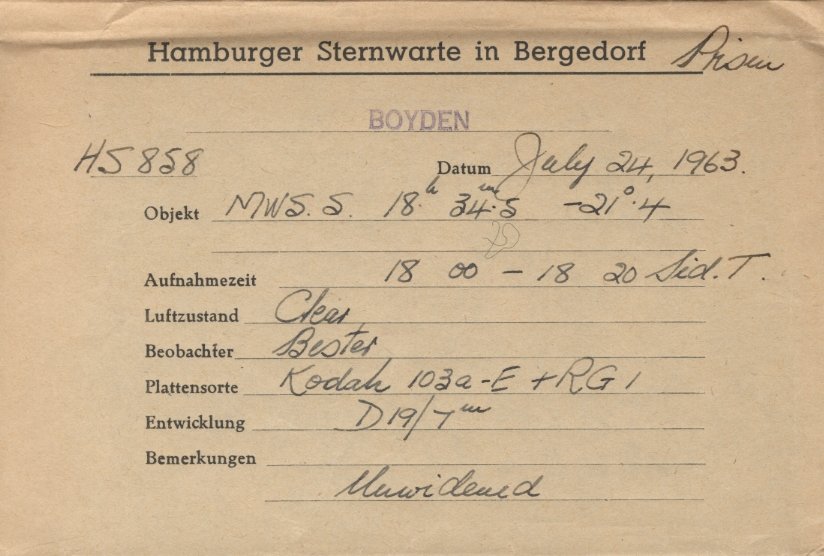 Hamburger Sternwarte in Bergedorf Prisen
BOYDEN
HS 858 Datum July 24, 1963.
Objekt MWS. S. 18h 34m.5 -21°.4
20
Aufnahmezeit 18 00 - 18 20 Sid. T.
Luftzustand Clear
Beobachter Bester
Plattensorte Kodak 103a-E + RG1
Entwicklung D19/7m
Bemerkungen
Unwidened